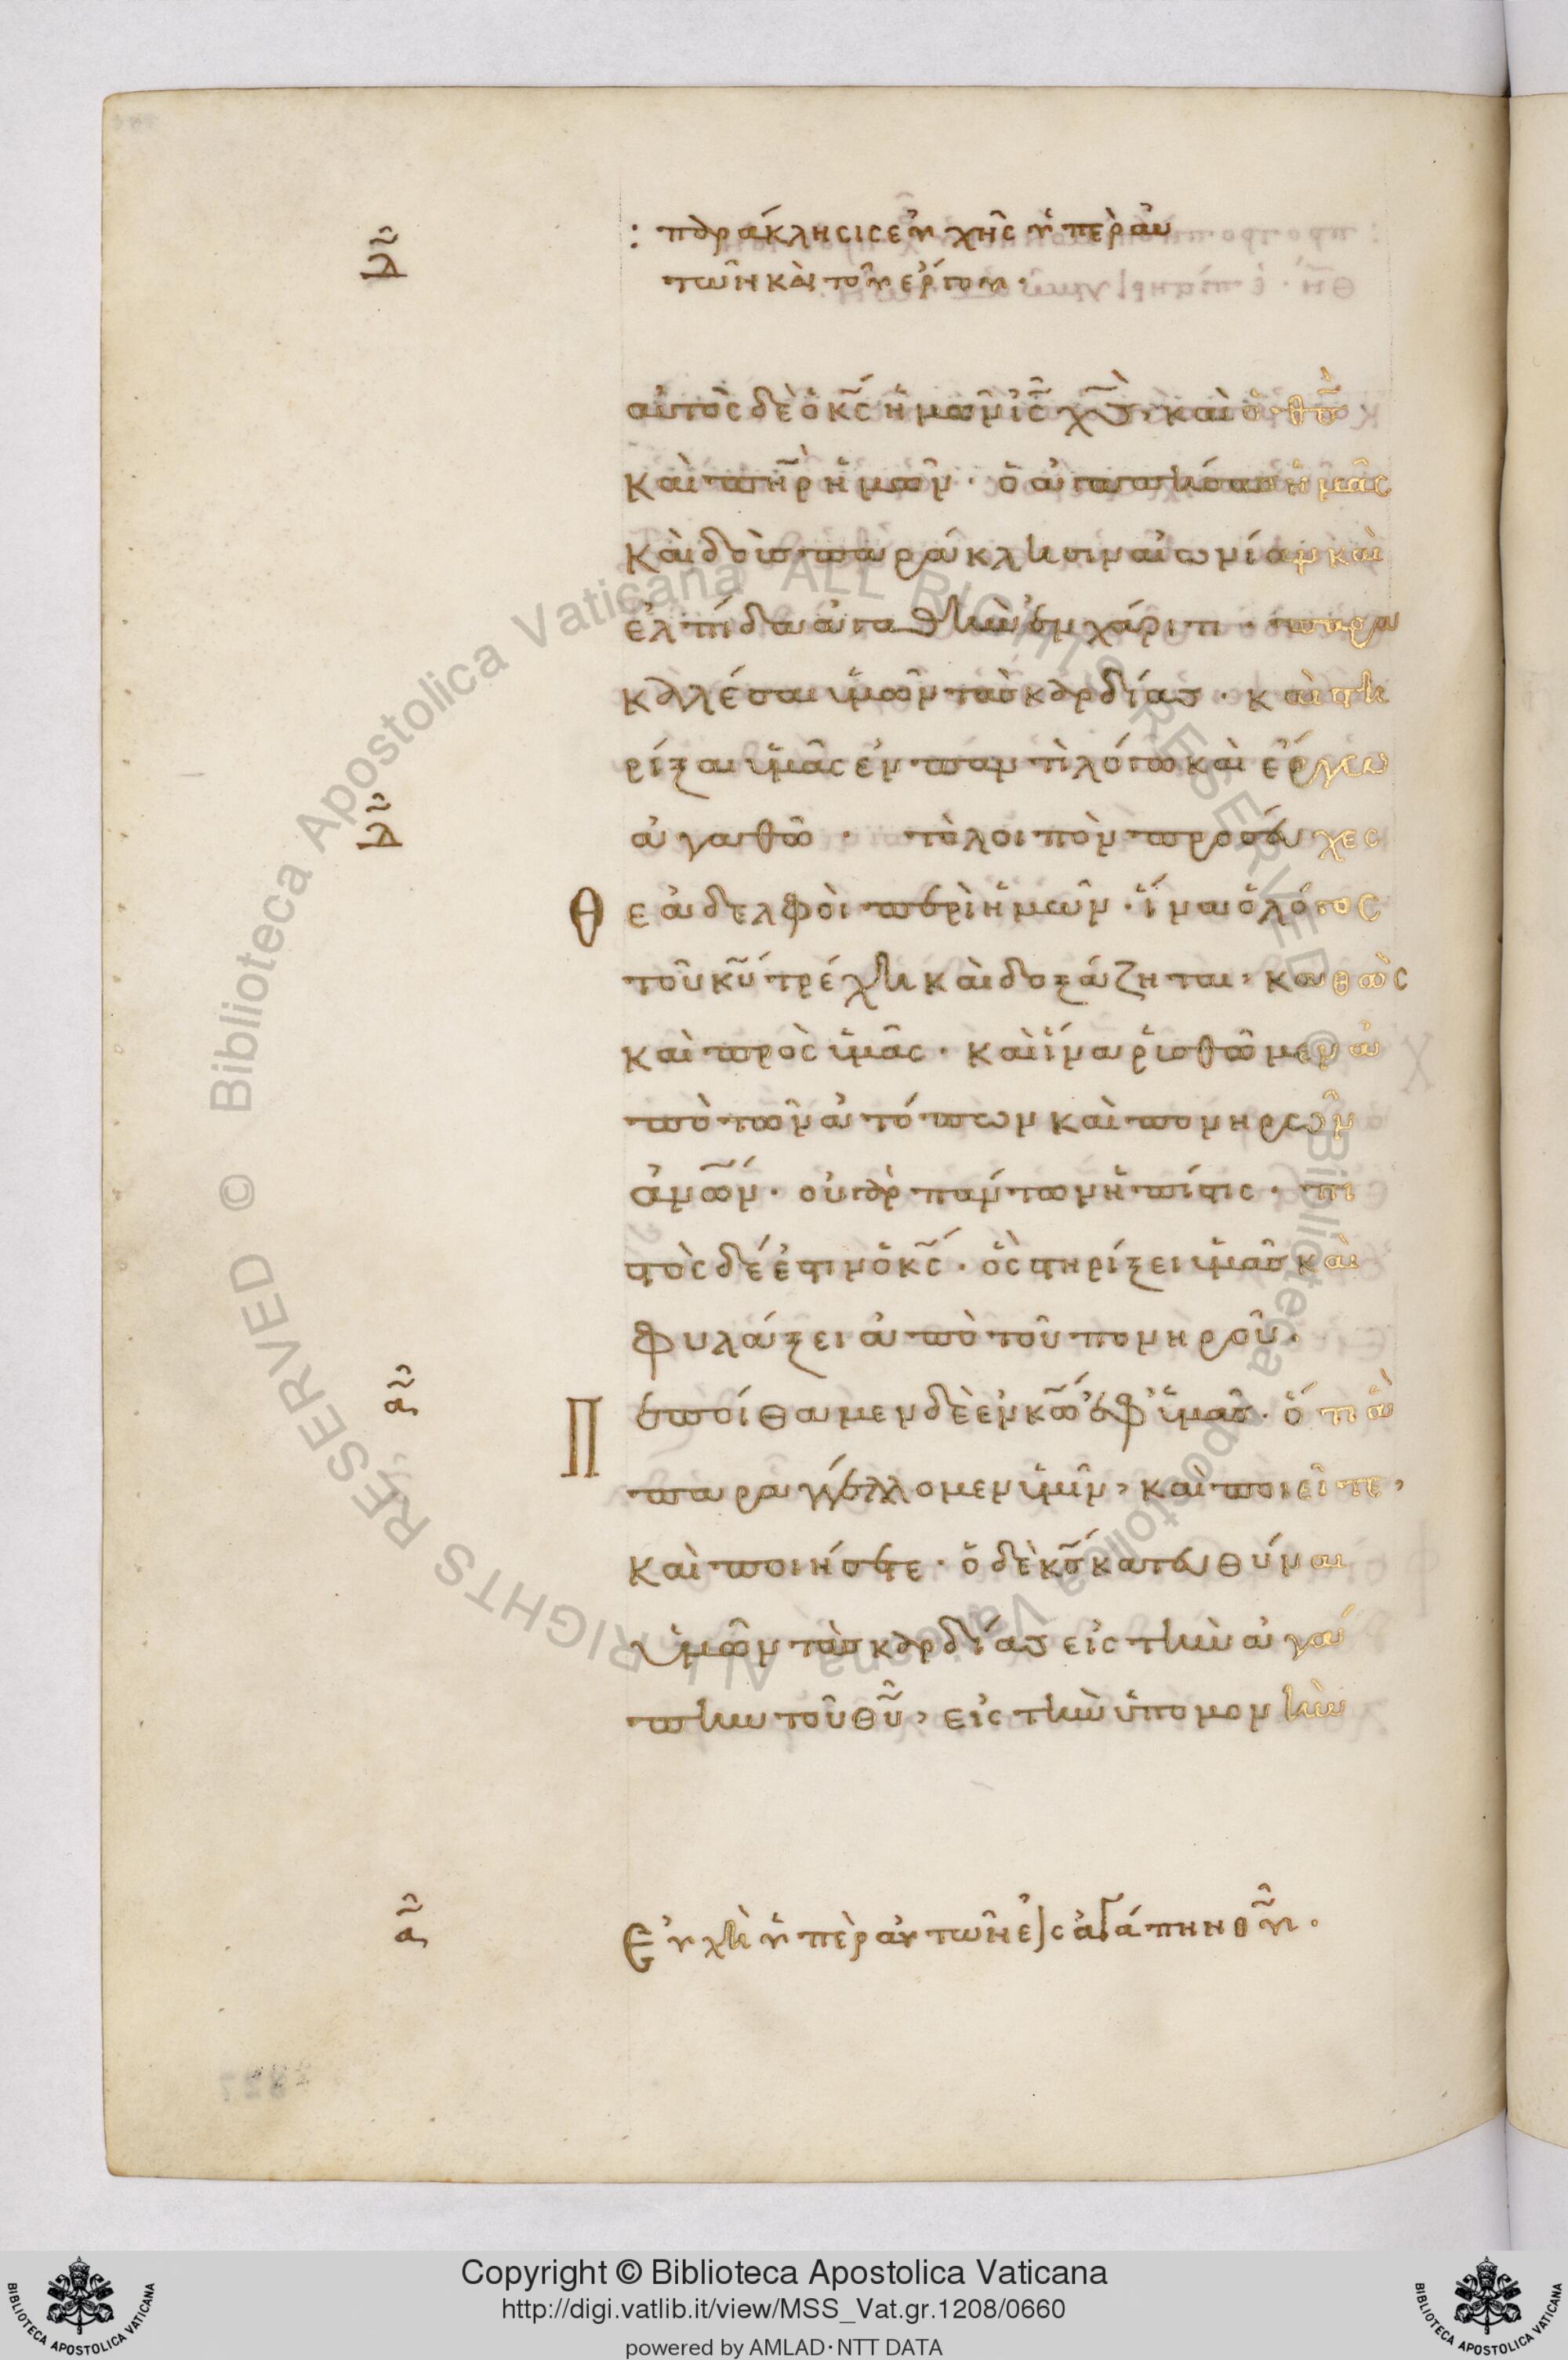 : παράκλησις εὐχῆς ὑπὲρ αὐ
τῶν καὶ τοῦ ἔργου ·
αὐτὸς δὲ ὁ κ̅ς̅ ἡμῶν ἰ̅ς̅ χ̅ς̅, καὶ ὁ θ̅ς̅
καὶ π̅η̅ρ̅ ἡμῶν · ὁ ἀγαπήσας ἡμᾶς
καὶ δοὺς παράκλησιν αἰωνίαν καὶ
ἐλπίδα ἀγαθὴν ἐν χάριτι · παρα
καλέσαι ὑμῶν τὰς καρδίας · καὶ στη
ρίξαι ὑμᾶς ἐν παντὶ λόγω καὶ ἔργω
ἀγαθῶ · τὸ λοιπὸν προσεύχεσ
θε ἀδελφοὶ περὶ ἡμῶν · ἵνα ὁ λόγος
τοῦ κ̅υ̅ τρέχη καὶ δοξάζηται, καθὼς
καὶ πρὸς ὑμᾶς · καὶ ἵνα ῥυσθῶμεν ἀ
πὸ τῶν ἀτόπων καὶ πονηρῶν
ἀ̅ν̅ω̅ν̅ · οὐ γὰρ πάντων ἡ πίστις · πι
στὸς δέ ἐστιν ὁ κ̅ς̅ · ὃς στηρίξει ὑμᾶς καὶ
φυλάξει ἀπὸ τοῦ πονηροῦ ·
Πεποίθαμεν δὲ ἐν κ̅ω̅ ἐφ' ὑμᾶς · ὅτι ἃ
παραγγέλλομεν ὑμῖν, καὶ ποιεῖτε,
καὶ ποιήσετε · ὁ δὲ κ̅ς̅ κατευθύναι
ὑμῶν τὰς καρδίας εἰς τὴν ἀγά
πην τοῦ θ̅υ̅, εἰς τὴν ὑπομονὴν
Εὐχὴ ὑπὲρ αὐτῶν εἰς ἀγάπην θ̅υ̅ ·
Copyright © Biblioteca Apostolica Vaticana
http://digi.vatlib.it/view/MSS_Vat.gr.1208/0660
powered by AMLAD·NTT DATA
BIBLIOTECA APOSTOLICA VATICANA
BIBLIOTECA APOSTOLICA VATICANA
Biblioteca Apostolica Vaticana ALL RIGHTS RESERVED © Biblioteca Apostolica Vaticana ALL RIGHTS RESERVED ©